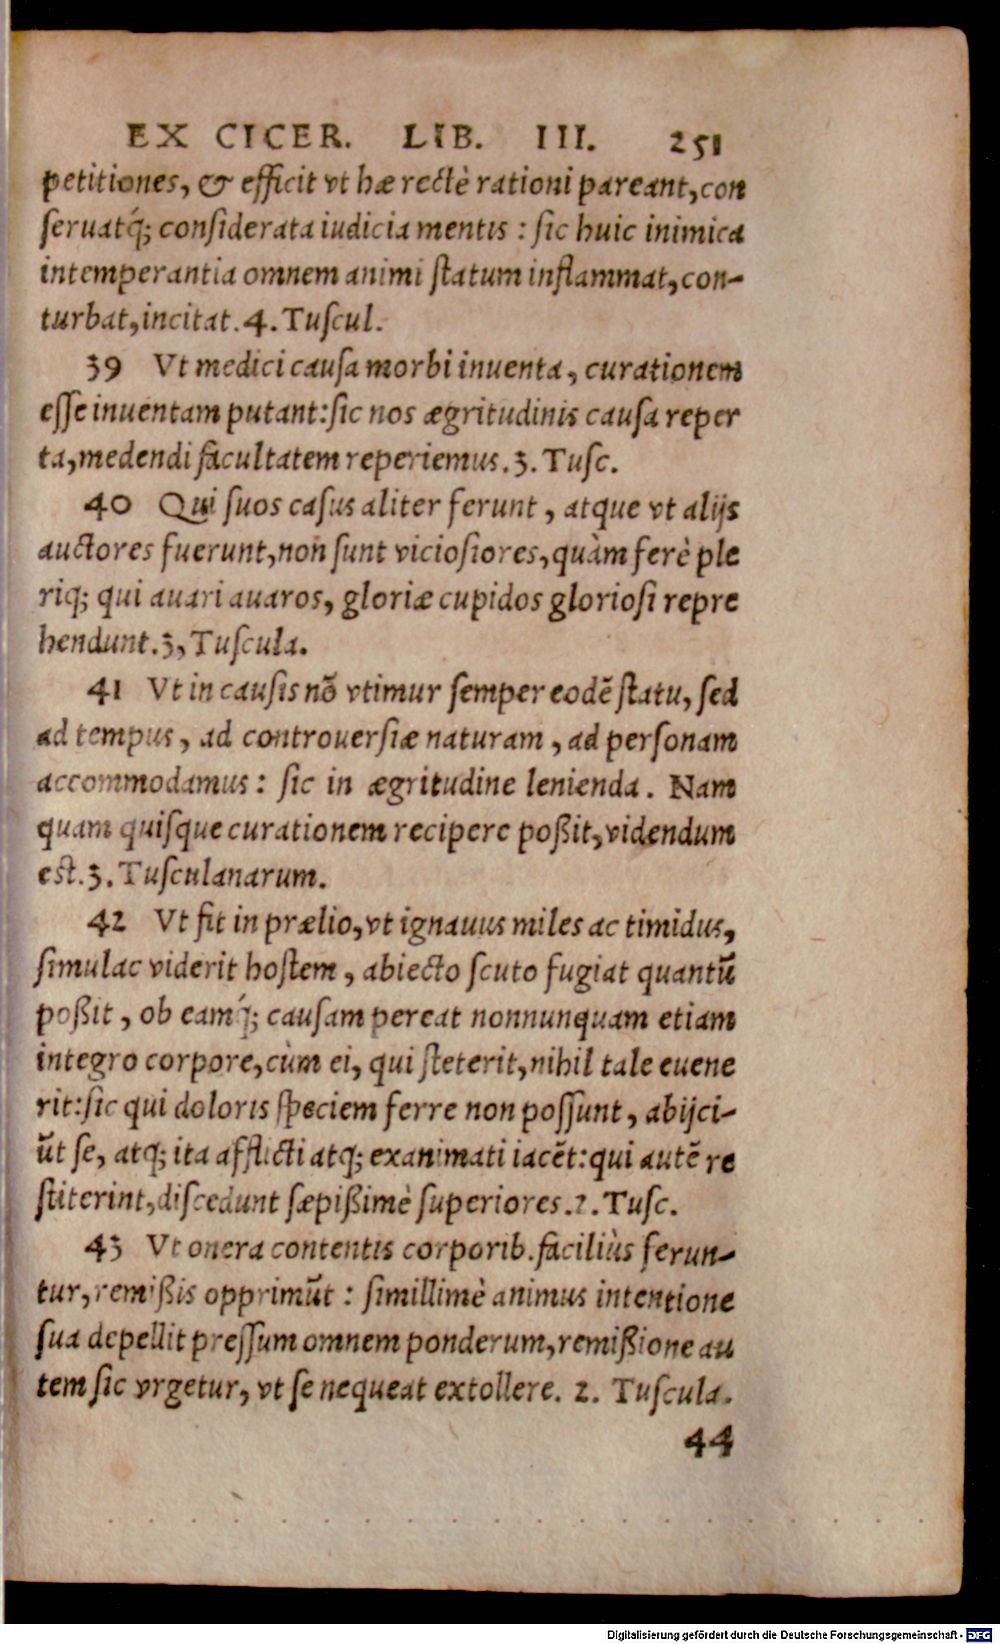 EX CICER. LIB. III. 251
petitiones, & efficit vt hæ rectè rationi pareant, con
ſeruatq́; conſiderata iudicia mentis : ſic huic inimica
intemperantia omnem animi ſtatum inflammat, con-
turbat, incitat. 4. Tuſcul.
39 Vt medici cauſa morbi inuenta, curationem
eſſe inuentam putant: ſic nos ægritudinis cauſa reper
ta, medendi facultatem reperiemus. 3. Tuſc.
40 Qui ſuos caſus aliter ferunt, atque vt alijs
auctores fuerunt, non ſunt vicioſiores, quàm ferè ple
riq; qui auari auaros, gloriæ cupidos glorioſi repre
hendunt. 3, Tuſcula.
41 Vt in cauſis nō vtimur ſemper eodē ſtatu, ſed
ad tempus, ad controuerſiæ naturam, ad perſonam
accommodamus: ſic in ægritudine lenienda. Nam
quam quiſque curationem recipere poßit, videndum
est. 3. Tuſculanarum.
42 Vt fit in prælio, vt ignauus miles ac timidus,
ſimulac viderit hoſtem, abiecto ſcuto fugiat quantū
poßit, ob eamq́; cauſam pereat nonnunquam etiam
integro corpore, cùm ei, qui ſteterit, nihil tale euene
rit: ſic qui doloris ſpeciem ferre non poſſunt, abijci-
ūt ſe, atq; ita afflicti atq; exanimati iacēt: qui autē re
ſtiterint, diſcedunt ſæpißimè ſuperiores. 2. Tuſc.
43 Vt onera contentis corporib. faciliùs ferun-
tur, remißis opprimūt : ſimillimè animus intentione
ſua depellit preſſum omnem ponderum, remißione au
tem ſic vrgetur, vt ſe nequeat extollere. 2. Tuſcula.
44
Digitalisierung gefördert durch die Deutsche Forschungsgemeinschaft - DFG